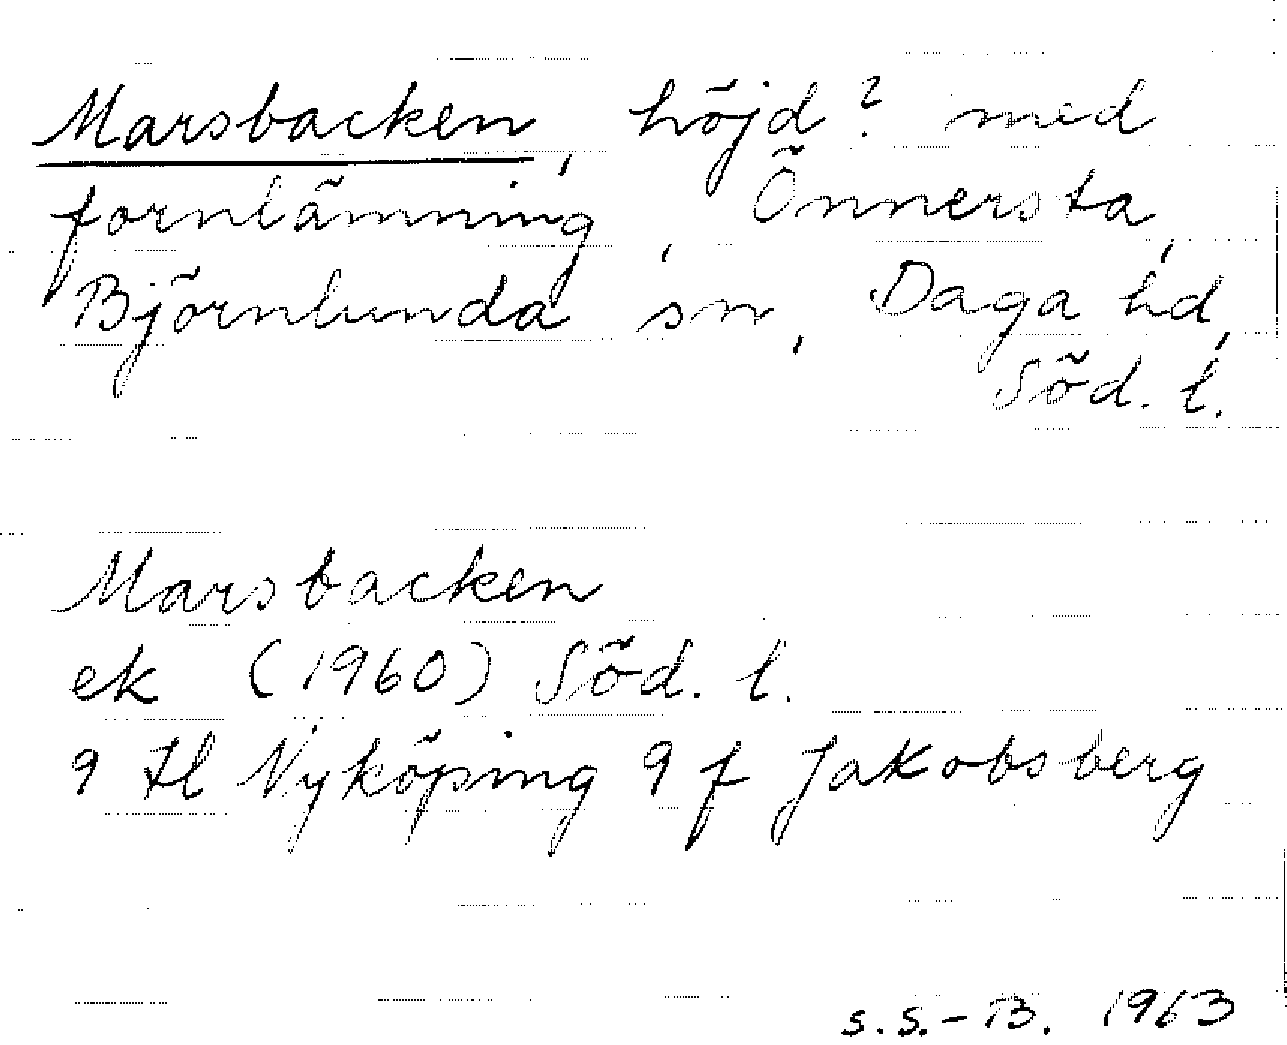 Marsbacken, höjd? med
fornlämning, Önnersta,
Björnlunda sn, Daga hd,
Söd. l.
Marsbacken
ek (1960) Söd. l.
9 H Nyköping 9 f Jakobsberg
S.S.-B. 1963